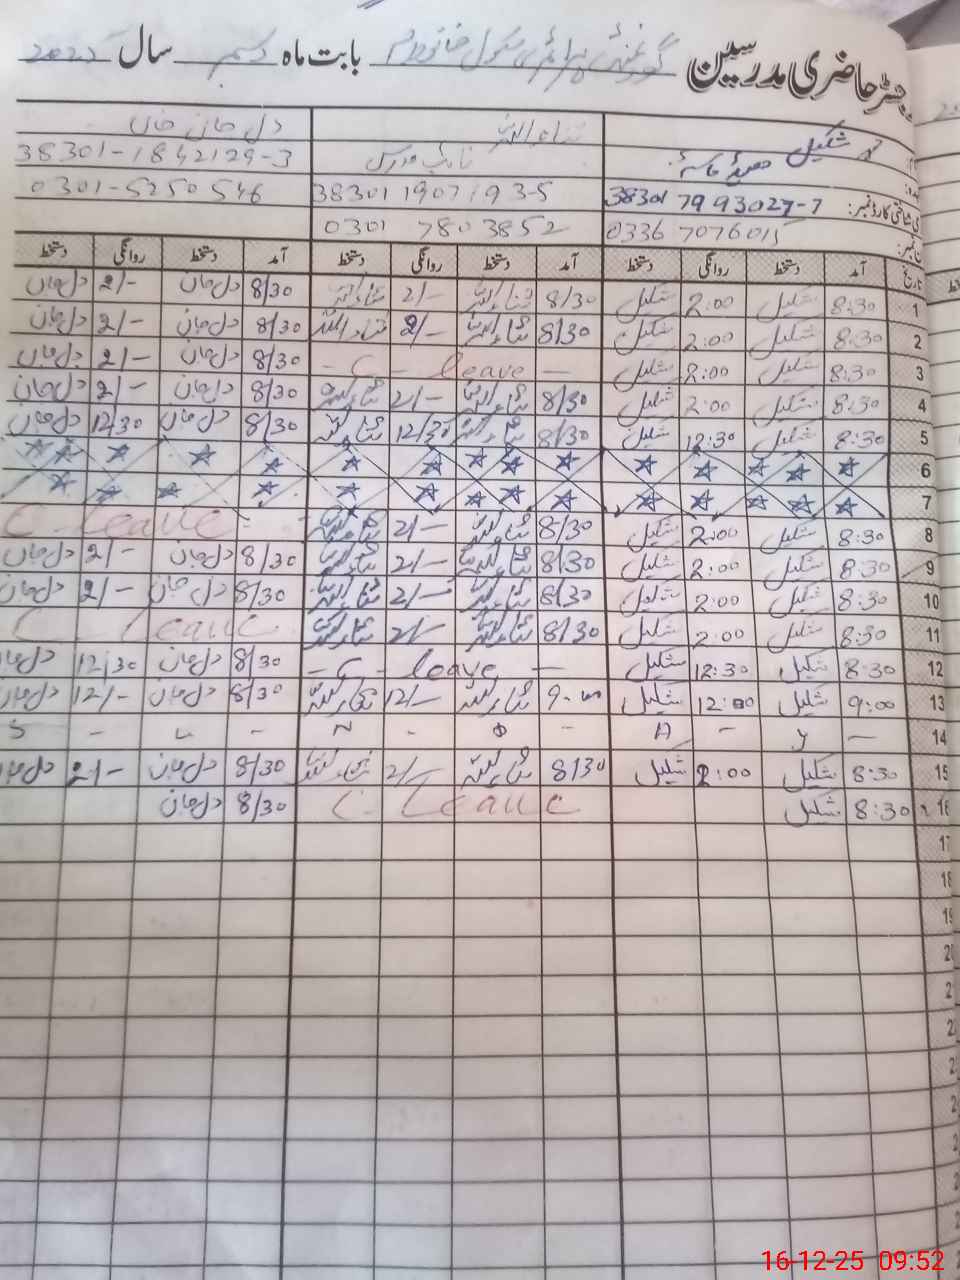 رجسٹر حاضری مدرسین گورنمنٹ پرائمری سکول بابت ماہ دسمبر سال 2025
شکیل ثناء اللہ دل جان خان
نائب مدرس 38301-1842129-3
شناختی کارڈ نمبر: 38301 7993027-7 38301 1907193-5 0301-5250546
0336 7076015 0301 7803852
تاریخ آمد دستخط روانگی دستخط آمد دستخط روانگی دستخط آمد دستخط روانگی دستخط
1 8:30 شکیل 2:00 شکیل 8/30 ثناء اللہ 2/- ثناء اللہ 8/30 دل جان 2/- دل جان
2 8:30 شکیل 2:00 شکیل 8/30 ثناء اللہ 2/- ثناء اللہ 8/30 دل جان 2/- دل جان
3 8:30 شکیل 2:00 شکیل - C - leave - 8/30 دل جان 2/- دل جان
4 8:30 شکیل 2:00 شکیل 8/30 ثناء اللہ 2/- ثناء اللہ 8/30 دل جان 2/- دل جان
5 8:30 شکیل 12:30 شکیل 8/30 ثناء اللہ 12/30 ثناء اللہ 8/30 دل جان 12/30 دل جان
6
7
8 8:30 شکیل 2:00 شکیل 8/30 ثناء اللہ 2/- ثناء اللہ C - Leave -
9 8:30 شکیل 2:00 شکیل 8/30 ثناء اللہ 2/- ثناء اللہ 8/30 دل جان 2/- دل جان
10 8:30 شکیل 2:00 شکیل 8/30 ثناء اللہ 2/- ثناء اللہ 8/30 دل جان 2/- دل جان
11 8:30 شکیل 2:00 شکیل 8/30 ثناء اللہ 2/- ثناء اللہ C - Leave
12 8:30 شکیل 12:30 شکیل - C - leave - 8/30 دل جان 12/30 دل جان
13 9:00 شکیل 12:00 شکیل 9:00 ثناء اللہ 12/- ثناء اللہ 8/30 دل جان 12/- دل جان
14 - y - A - - N - U - S
15 8:30 شکیل 2:00 شکیل 8/30 ثناء اللہ 2/- ثناء اللہ 8/30 دل جان 2/- دل جان
16 8:30 شکیل C - Leave 8/30 دل جان
17
18
19
16-12-25 09:52